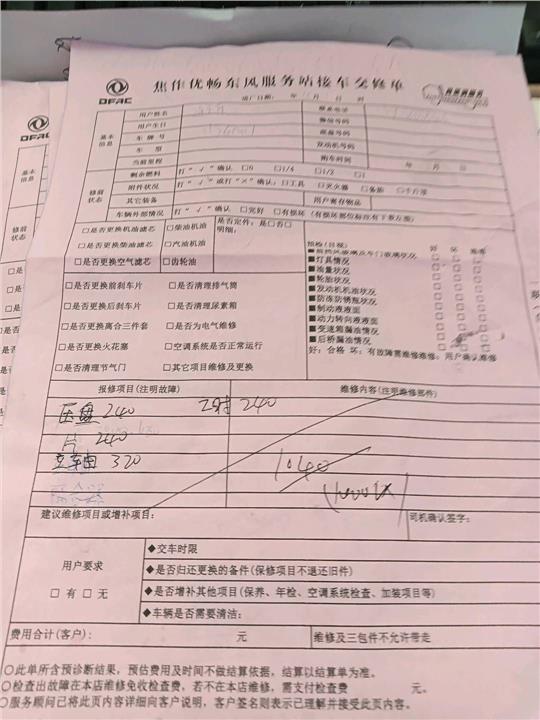 DFAC
焦作优畅东风服务站接车交修单
进厂日期： 年 月 日 时
DFAC
基本
信息
用户姓名
用户生日
车牌号
车型
当前里程
联系电话
底盘号码
发动机号码
购车时间 年 月 日
修前
状态
剩余燃料 打“√”确认 □0 □1/4 □1/2 □1
附件状况 打“√”或打“×”确认：□工具 □灭火器 □备胎 □千斤顶
其它装备 用户寄存物品
车辆外部情况 打“√”确认 □完好 □有损坏（有损坏部位标注有下表左面）
□是否更换机油滤芯 □柴油机油 是否定件：是□否□
□是否更换柴油滤芯 □汽油机油 明细：
□是否更换空气滤芯 □齿轮油
□是否更换前刹车片 □是否清理排气筒
□是否更换后刹车片 □是否清理尿素箱
□是否更换离合三件套 □是否为电气维修
□是否更换火花塞 □空调系统是否正常运行
□是否清理节气门 □其它项目维修及更换
预检(目视) 好 坏
■灯具情况
■油量状况
■轮胎状况
■发动机机油状况
■防冻防锈瓶状况
■制动液液面
■动力转向液液面
■变速箱漏油情况
■后桥漏油情况
好：合格 坏：有故障需维修维修：用户确认维修
报修项目(注明故障) 维修内容(注明维修部件)
压盘 240 工时 240
片 240
320
1040
建议维修项目或增补项目： 司机确认签字：
用户要求
□有 □无
◆交车时限
◆是否归还更换的备件(保修项目不退还旧件)
◆是否增补其他项目(保养、年检、空调系统检查、加装项目等)
◆车辆是否需要清洁：
费用合计(客户)： 元 维修及三包件不允许带走
○此单所含预诊断结果，预估费用及时间不做结算依据，结算以结算单为准。
○检查出故障在本店维修免收检查费，若不在本店维修，需支付检查费 元。
○服务顾问已将此页内容详细向客户说明，客户签名则表示已理解并接受此页内容。